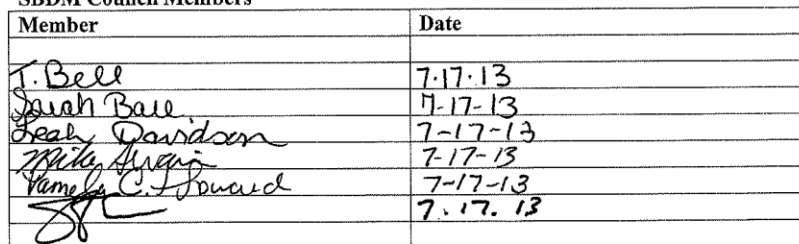 SBDM Council Members
Member Date
T. Bell 7.17.13
Sarah Ball 7-17-13
Leah Davidson 7-17-13
Mike 7-17-13
Pamela C. Howard 7-17-13
7.17.13